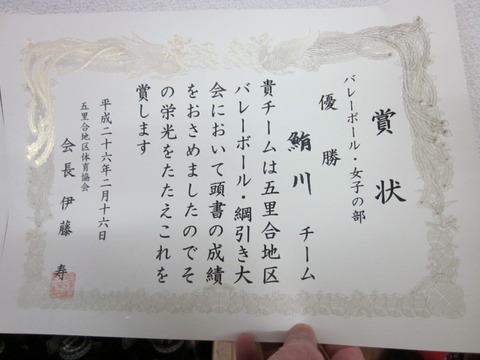 賞状
バレーボール・女子の部
優勝
鮪川 チーム
貴チームは五里合地区
バレーボール・綱引き大
会において頭書の成績
をおさめましたのでそ
の栄光をたたえこれを
賞します
平成二十六年二月十六日
五里合地区体育協会
会長 伊藤 寿